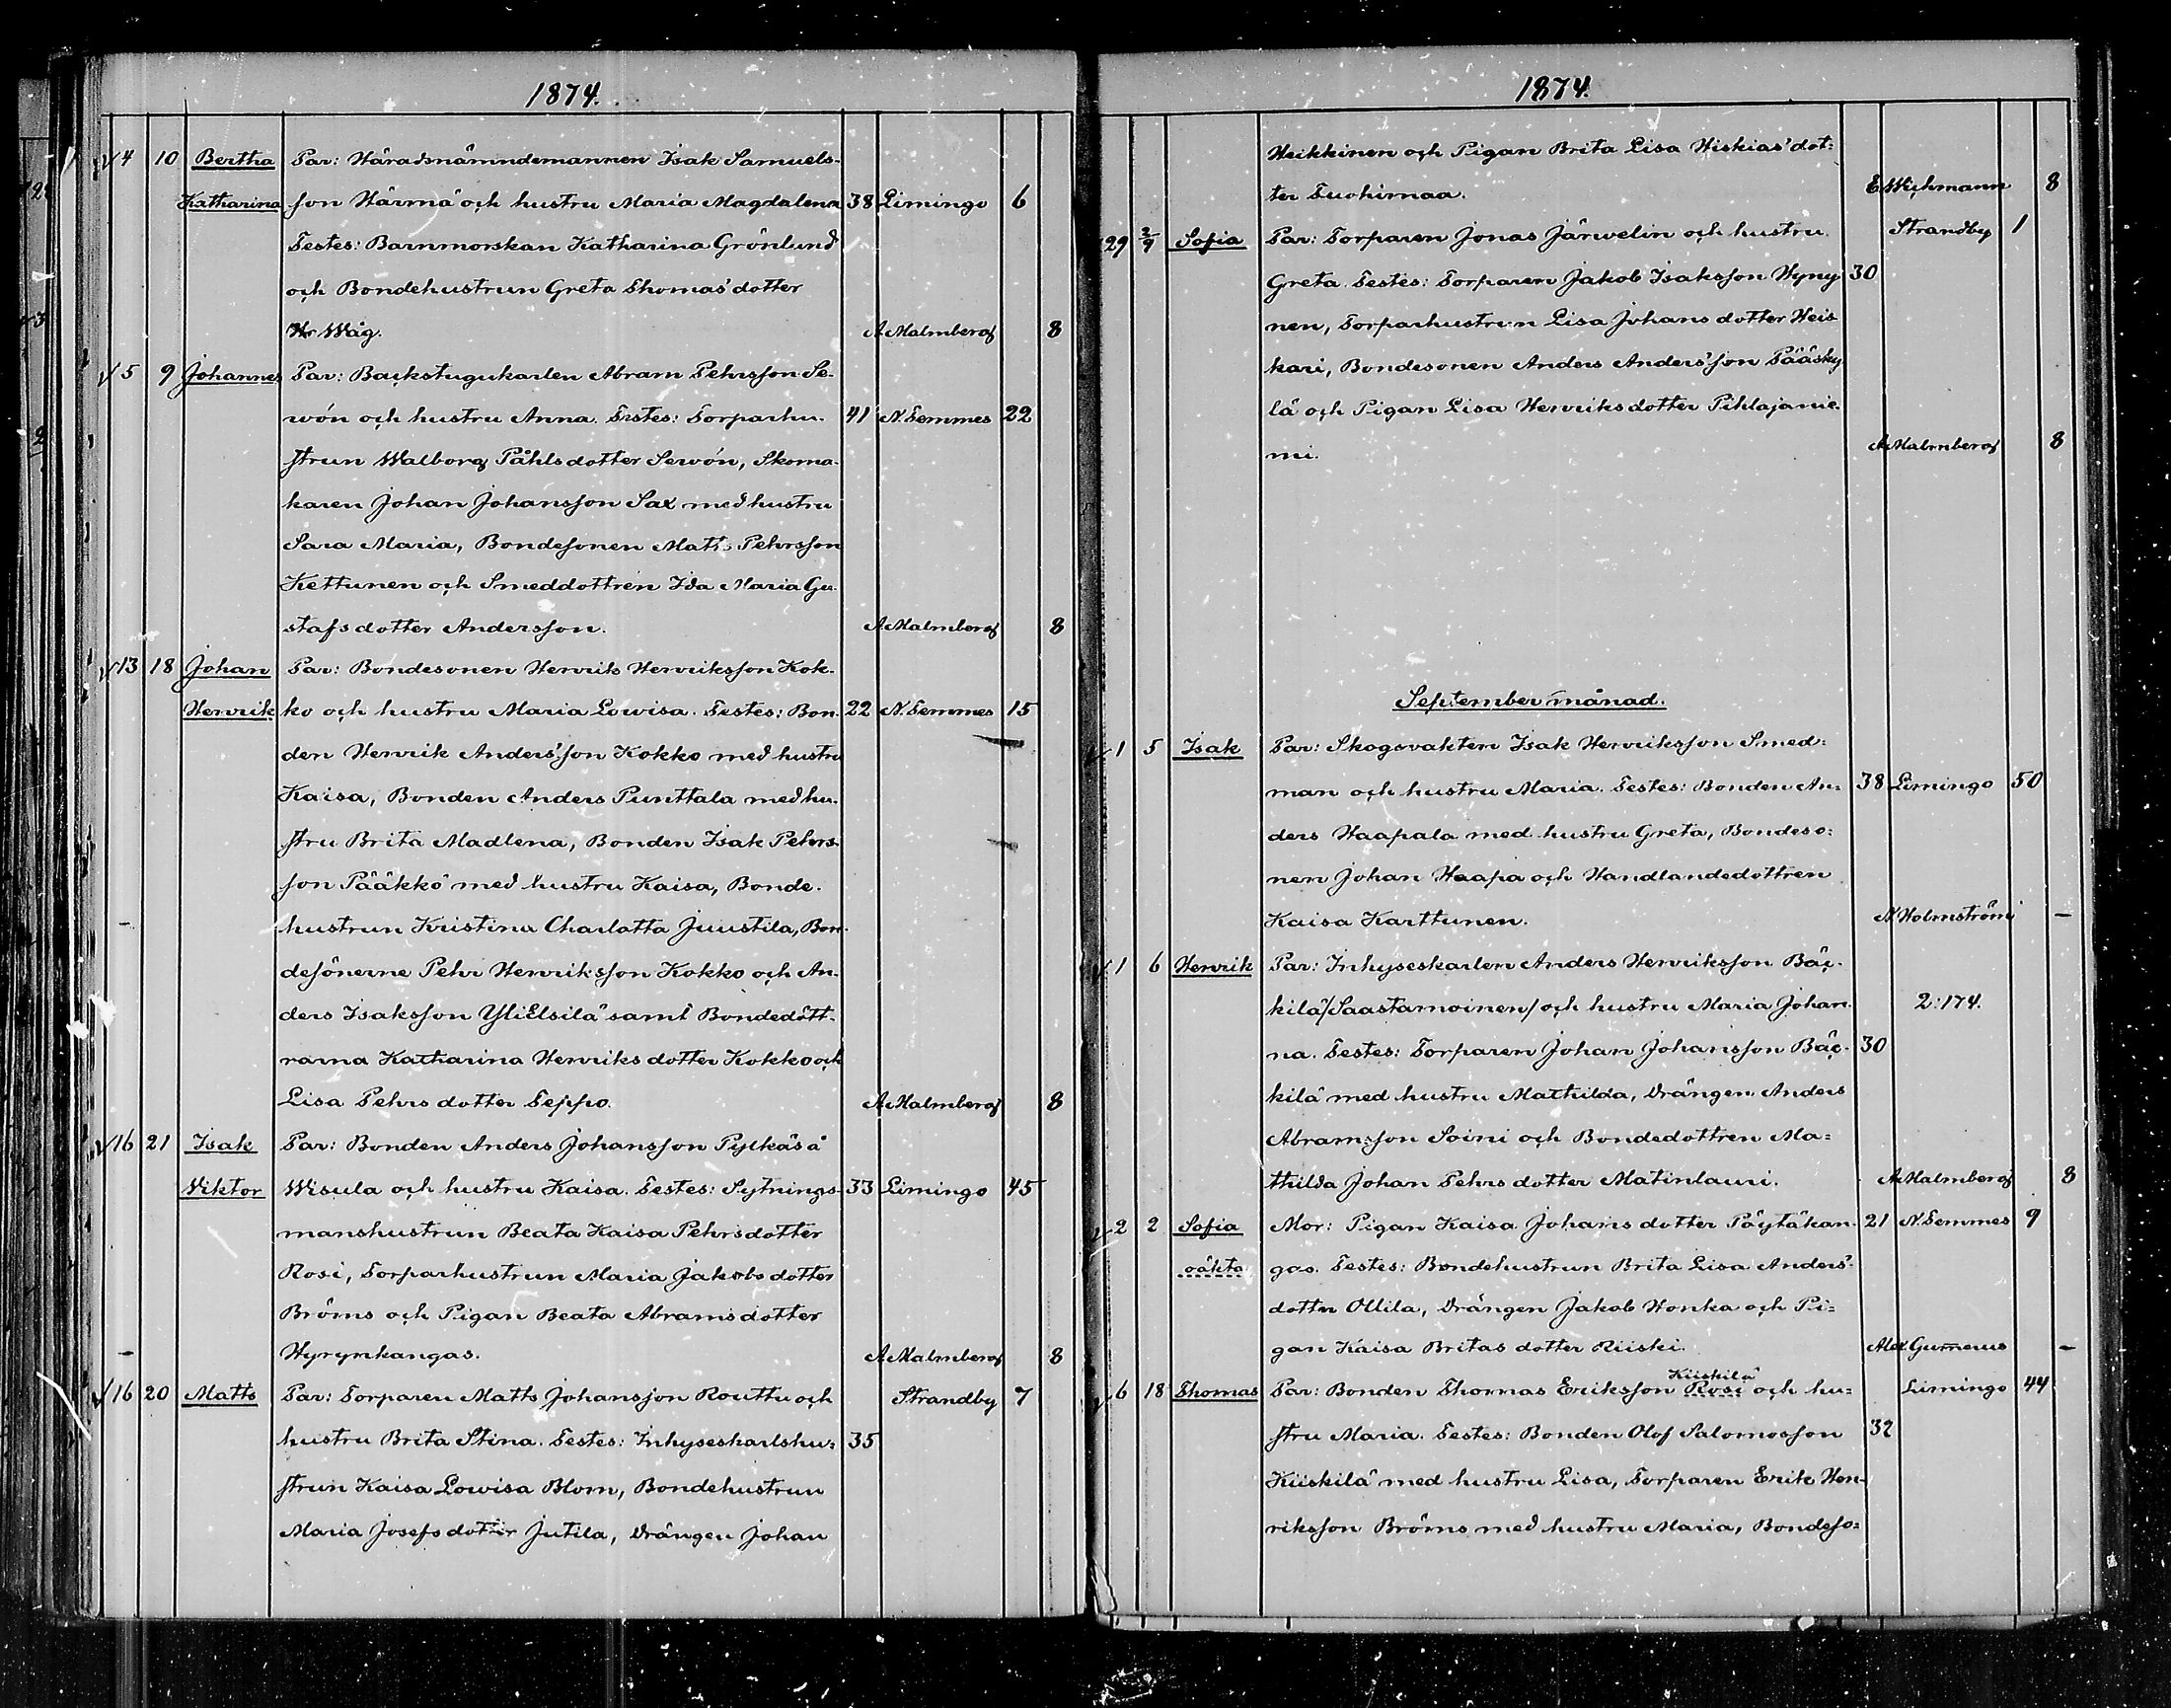 1874.
4 10 Bertha Par: Häradsnämndemannen Isak Samuels-
Katharina son Härmä och hustru Maria Magdalena 38 Limingo 6
Testes: Barnmorskan Katharina Grönlund
och Bondehustrun Greta Thomas'dotter
Wåg. A Malmberg 8
5 9 Johannes Par: Backstugukarlen Abram Pehrsson Se-
wón och hustru Anna. Testes: Torparhu- 41 N. Temmes 22
strun Walborg Påhlsdotter Sewón, Skoma-
karen Johan Johansson Sax med hustru
Sara Maria, Bondesonen Matts Pehrsson
Kettunen och Smeddottren Ida Maria Gu-
stafsdotter Andersson. A Malmberg 8
13 18 Johan Par: Bondesonen Henrik Henriksson Kok-
Henrik ko och hustru Maria Lowisa. Testes: Bon- 22 N. Temmes 15
den Henrik Anders'son Kokko med hustru
Kaisa, Bonden Anders Punttala med hu-
stru Brita Madlena, Bonden Isak Pehrs-
son Pääkkö med hustru Kaisa, Bonde-
hustrun Kristina Charlotta Juustila, Bon-
desönerne Pehr Henriksson Kokko och An-
ders Isaksson YliElsilä samt Bondedött-
rarna Katharina Henriksdotter Kokko och
Lisa Pehrsdotter Seppo. A Malmberg 8
16 21 Isak Par: Bonden Anders Johansson Pylkäs å
Viktor Wisula och hustru Kaisa. Testes: Sytnings- 33 Limingo 45
manshustrun Beata Kaisa Pehrsdotter
Rosi, Torparhustrun Maria Jakobsdotter
Bröms och Pigan Beata Abramsdotter
Hyrynkangas. A Malmberg 8
16 20 Matts Par: Torparen Matts Johansson Routtu och Strandby 7
hustru Brita Stina. Testes: Inhyseskarlshu- 35
strun Kaisa Lowisa Blom, Bondehustrun
Maria Josefsdotter Jutila, Drängen Johan
1874.
Heikkinen och Pigan Brita Lisa Hiskias'dot-
ter Tuohimaa. E. Wichmann 8
29 2/9 Sofia Par: Torparen Jonas Järwelin och hustru Strandby 1
Greta. Testes: Torparen Jakob Isaksson Hyny 30
nen, Torparhustrun Lisa Johansdotter Heis
kari, Bondesonen Anders Anders'son Pääsky
lä och Pigan Lisa Henriksdotter Pihlajanie-
mi. A Malmberg 8
September månad.
1 5 Isak Par: Skogsvakten Isak Henriksson Smed-
man och hustru Maria. Testes: Bonden An- 38 Limingo 50
ders Haapala med hustru Greta, Bondeso-
nen Johan Haapa och Handlandedottren
Kaisa Karttunen. N Holmström -
1 6 Henrik Par: Inhyseskarlen Anders Henriksson Bäc-
kilä /Saastamoinen/ och hustru Maria Johan- 2:174.
na. Testes: Torparen Johan Johansson Bäc- 30
kilä med hustru Mathilda, Drängen Anders
Abramsson Soini och Bondedottren Ma-
thilda Johan Pehrsdotter Matinlauri. A Malmberg 8
2 2 Sofia Mor: Pigan Kaisa Johansdotter Pöytäkan- 21 N. Temmes 9
oäkta gas. Testes: Bondehustrun Brita Lisa Anders'-
dotter Ollila, Drängen Jakob Honka och Pi-
gan Kaisa Britasdotter Riiski. Alex. Gummerus -
Kiiskilä
6 18 Thomas Par: Bonden Thomas Eriksson Rosi och hu- Limingo 44
stru Maria. Testes: Bonden Olof Salomosson 32
Kiiskilä med hustru Lisa, Torparen Erik Hen-
riksson Bröms med hustru Maria, Bondeso-